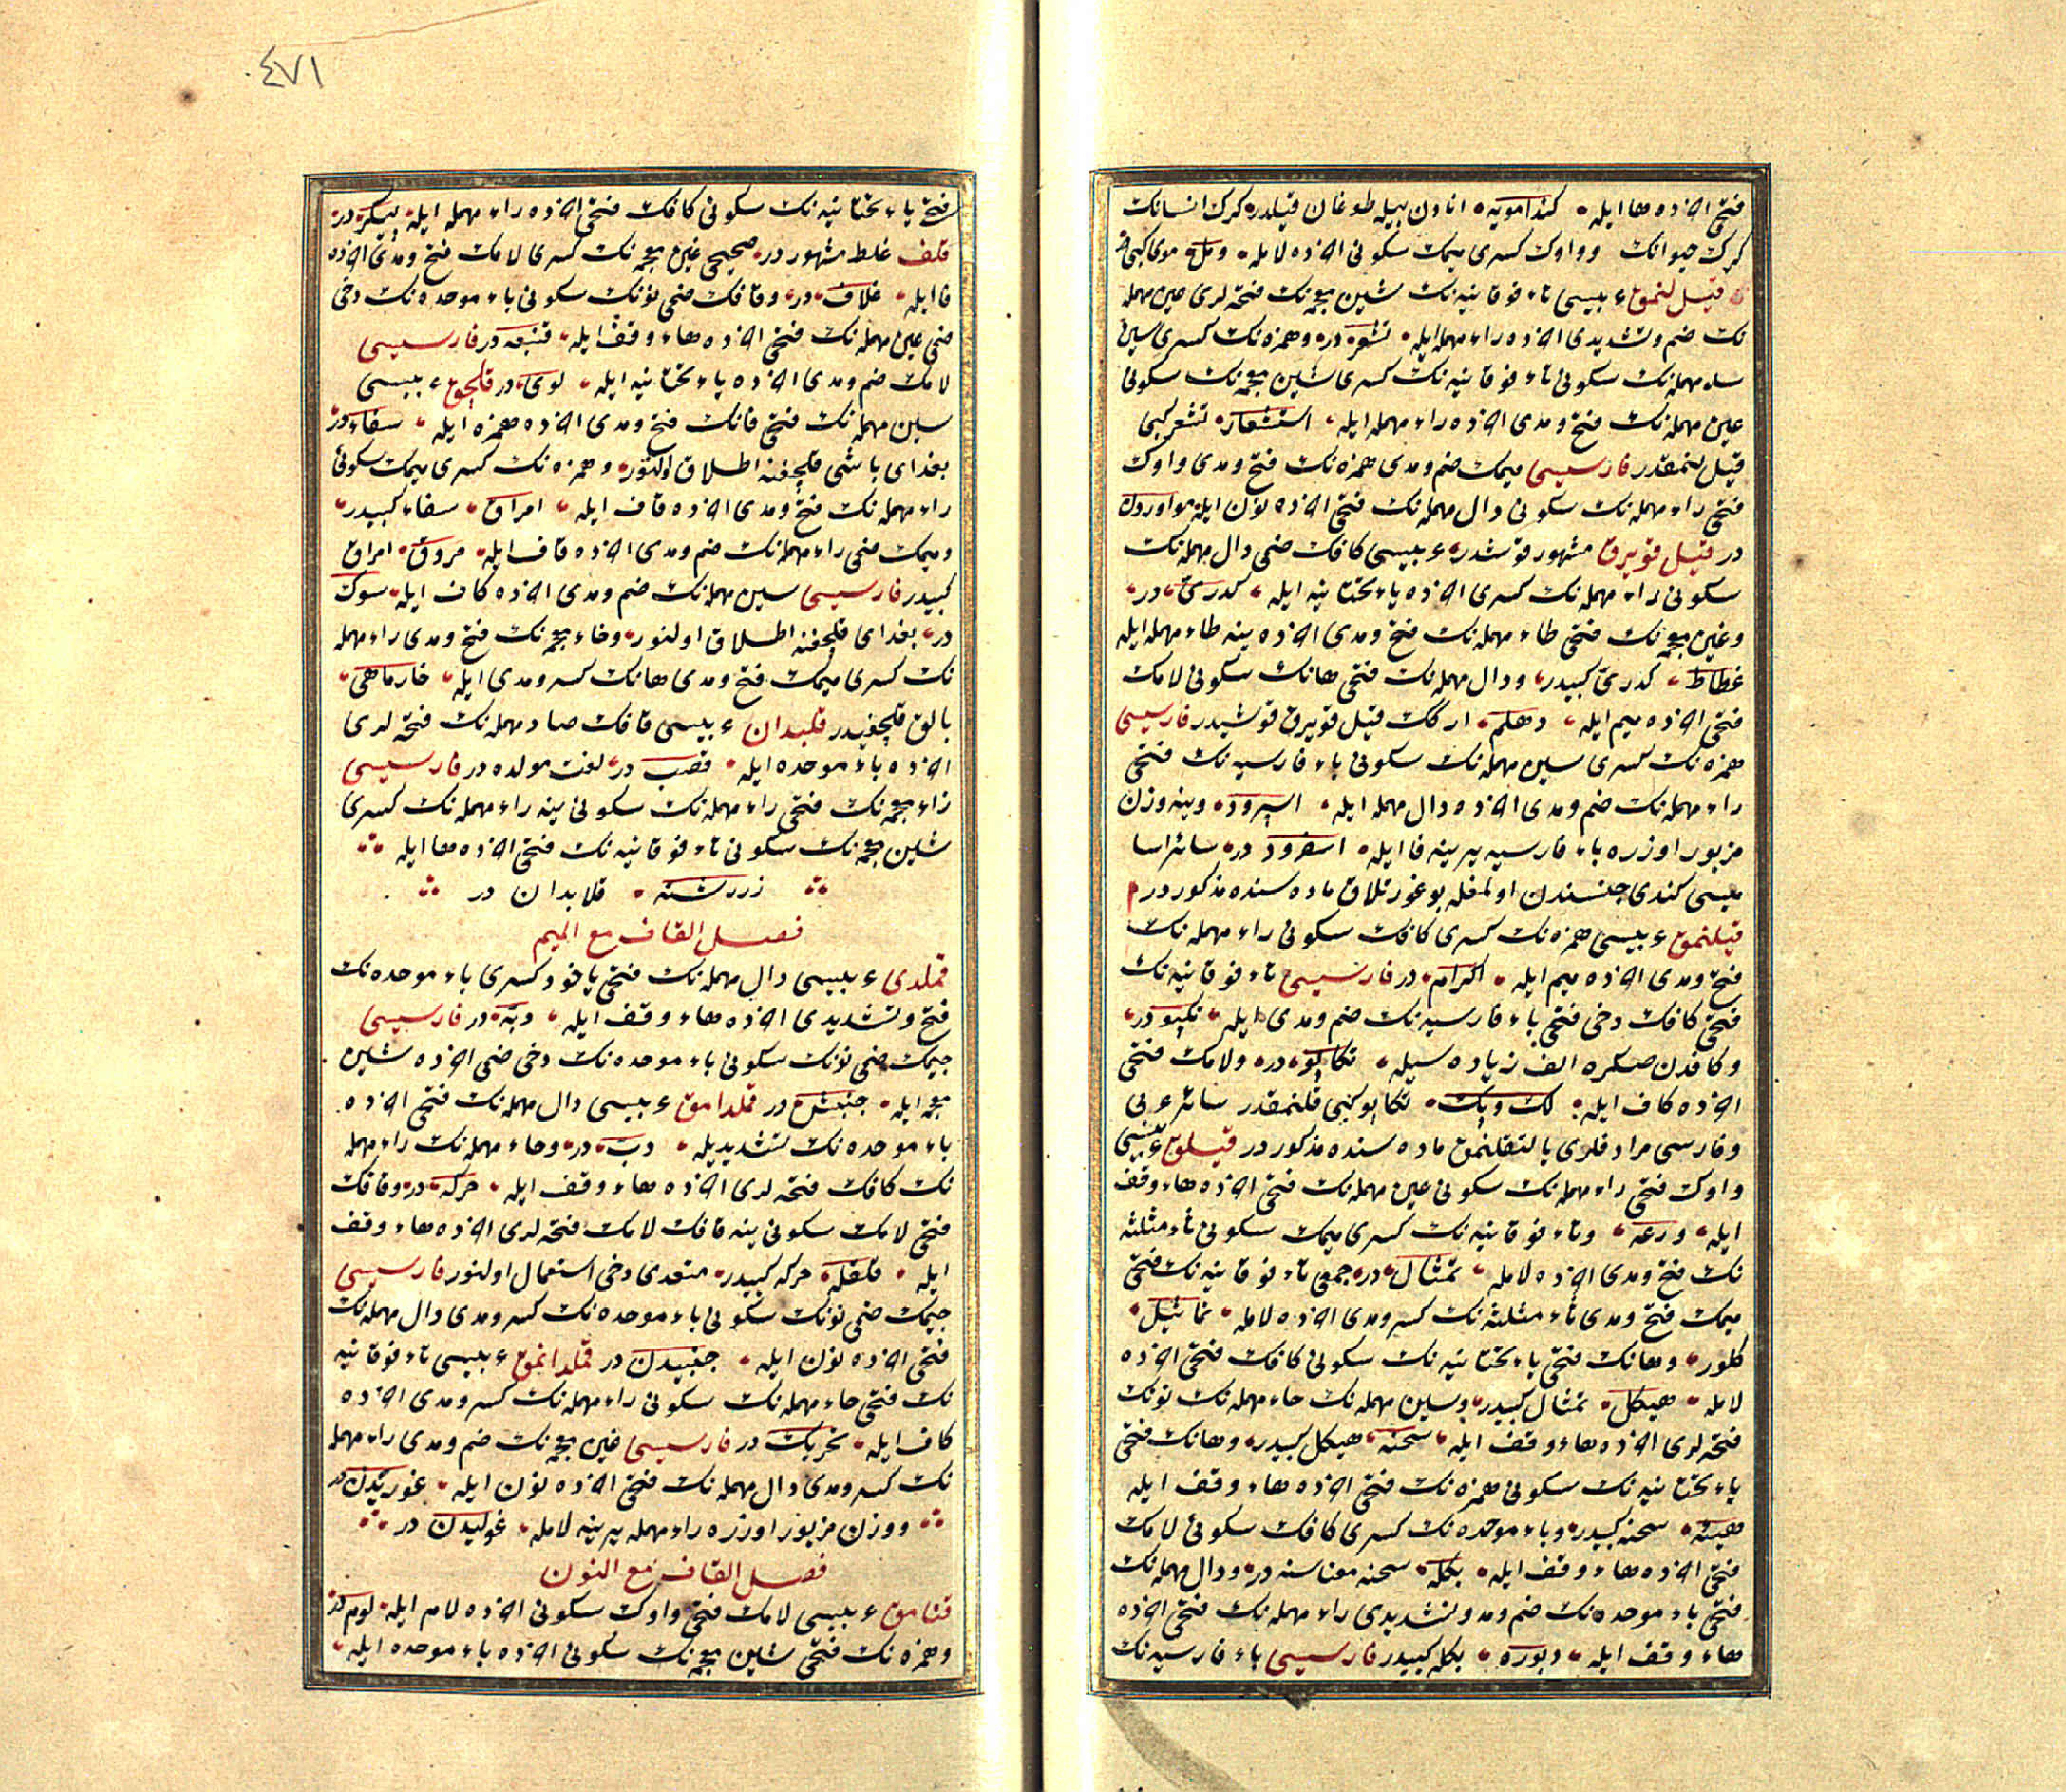 فتحی اخرده ها ایله كندامویه انادن بیله طوغان قیلدر كرك انسانك
كرك حیوانك وواوك كسری میمك سكونی اخرده لامله ومل موی كبی
قیل لنمق عربیسی تاء فوقانیه نك شین معجمه نك فتحه لری عین مهمله
نك ضم وتشدیدی اخرده راء مهمله ایله تشعر در وهمزه نك كسری سین
مهمله نك سكونی تاء فوقانیه نك كسری شین معجمه نك سكونی
عین مهمله نك فتح ومدی اخرده راء مهمله ایله استشعار تشعر كبی
قیل لنمقدر فارسیسی میمك ضم ومدی همزه نك فتح ومدی واوك
فتحی راء مهمله نك سكونی دال مهمله نك فتحی اخرده نون ایله مواوردن
در قیل قویرق مشهور قوشدر عربیسی كافك ضمی دال مهمله نك
سكونی راء مهمله نك كسری اخرده یاء تحتانیه ایله كدری در
وغین معجمه نك فتحی طاء مهمله نك فتح ومدی اخرده ینه طاء مهمله ایله
غطاط كدری كبیدر ودال مهمله نك فتحی هانك سكونی لامك
فتحی اخرده میم ایله دهلم اركك قیل قویرق قوشیدر فارسیسی
همزه نك كسری سین مهمله نك سكونی باء فارسیه نك فتحی
راء مهمله نك ضم ومدی اخرده دال مهمله ایله اسپرود وینه وزن
مزبور اوزره باء فارسیه یرینه فا ایله اسفرود در سائر اسا
میسی كندی جنسندن اولمغله بوغورتلاق ماده سنده مذكور در
قیلنمق عربیسی همزه نك كسری كافك سكونی راء مهمله نك
فتح ومدی اخرده میم ایله اكرام در فارسیسی تاء فوقانیه نك
فتحی كافك دخی فتحی باء فارسیه نك ضم ومدی ایله تكپو در
وكافدن صكره الف زیاده سیله تكاپو در ولامك فتحی
اخرده كاف ایله لك وپك تكاپو كبی قلنمقدر سائر عربی
وفارسی مرادفلری یالتقلنمق ماده سنده مذكور در قیلوق عربیسی
واوك فتحی راء مهمله نك سكونی عین مهمله نك فتحی اخرده هاء وقف
ایله ورعه وتاء فوقانیه نك كسری میمك سكونی ثاء مثلثه
نك فتح ومدی اخرده لامله تمثال در جمعی تاء فوقانیه نك فتحی
میمك فتح ومدی ثاء مثلثه نك كسر ومدی اخرده لامله تماثیل
كلور وهانك فتحی یاء تحتانیه نك سكونی كافك فتحی اخرده
لامله هیكل تمثال كبیدر وسین مهمله نك حاء مهمله نك نونك
فتحه لری اخرده هاء وقف ایله سحنه هیكل كبیدر وهانك فتحی
یاء تحتانیه نك سكونی همزه نك فتحی اخرده هاء وقف ایله
هیئه سحنه كبیدر وباء موحده نك كسری كافك سكونی لامك
فتحی اخرده هاء وقف ایله بكله سحنه معناسنه در ودال مهمله نك
فتحی باء موحده نك ضم ومد وتشدیدی راء مهمله نك فتحی اخرده
هاء وقف ایله دبوره بكله كبیدر فارسیسی باء فارسیه نك
٤٧١
فتحی یاء تحتانیه نك سكونی كافك فتحی اخرده راء مهمله ایله پیكر در
قلف غلط مشهور در صحیحی غین معجمه نك كسری لامك فتح ومدی اخرده
فا ایله غلاف در وقافك ضمی نونك سكونی باء موحده نك دخی
ضمی عین مهمله نك فتحی اخرده هاء وقف ایله قنبعه در فارسیسی
لامك ضم ومدی اخرده یاء تحتانیه ایله لوی در قلچق عربیسی
سین مهمله نك فتحی فانك فتح ومدی اخرده همزه ایله سفاء در
بغدای باشی قلچغنه اطلاق اولنور وهمزه نك كسری میمك سكونی
راء مهمله نك فتح ومدی اخرده قاف ایله امراق سفاء كبیدر
ومیمك ضمی راء مهمله نك ضم ومدی اخرده قاف ایله مروق امراق
كبیدر فارسیسی سین مهمله نك ضم ومدی اخرده كاف ایله سوك
در بغدای قلچغنه اطلاق اولنور وخاء معجمه نك فتح ومدی راء مهمله
نك كسری میمك فتح ومدی هانك كسر ومدی ایله خارماهی
بالق قلچغیدر قلبدان عربیسی قافك صاد مهمله نك فتحه لری
اخرده باء موحده ایله قصب در لغت مولده در فارسیسی
زاء معجمه نك فتحی راء مهمله نك سكونی ینه راء مهمله نك كسری
شین معجمه نك سكونی تاء فوقانیه نك فتحی اخرده ها ایله
زررشته قلابدان در
فصل القاف مع المیم
قملدی عربیسی دال مهمله نك فتحی یاخود كسری باء موحده نك
فتح وتشدیدی اخرده هاء وقف ایله دبه در فارسیسی
جیمك ضمی نونك سكونی باء موحده نك دخی ضمی اخرده شین
معجمه ایله جنبش در قملدامق عربیسی دال مهمله نك فتحی اخرده
باء موحده نك تشدیدیله دب در وحاء مهمله نك راء مهمله
نك كافك فتحه لری اخرده هاء وقف ایله حركه در وقافك
فتحی لامك سكونی ینه قافك لامك فتحه لری اخرده هاء وقف
ایله قلقله حركه كبیدر متعدی دخی استعمال اولنور فارسیسی
جیمك ضمی نونك سكونی باء موحده نك كسر ومدی دال مهمله نك
فتحی اخرده نون ایله جنبیدن در قملدانمق عربیسی تاء فوقانیه
نك فتحی حاء مهمله نك سكونی راء مهمله نك كسر ومدی اخرده
كاف ایله تحریك در فارسیسی غین معجمه نك ضم ومدی راء مهمله
نك كسر ومدی دال مهمله نك فتحی اخرده نون ایله غوریدن در
ووزن مزبور اوزره راء مهمله یرینه لامله غولیدن در
فصل القاف مع النون
قنامق عربیسی لامك فتحی واوك سكونی اخرده لام ایله لوم در
وهمزه نك فتحی شین معجمه نك سكونی اخرده باء موحده ایله